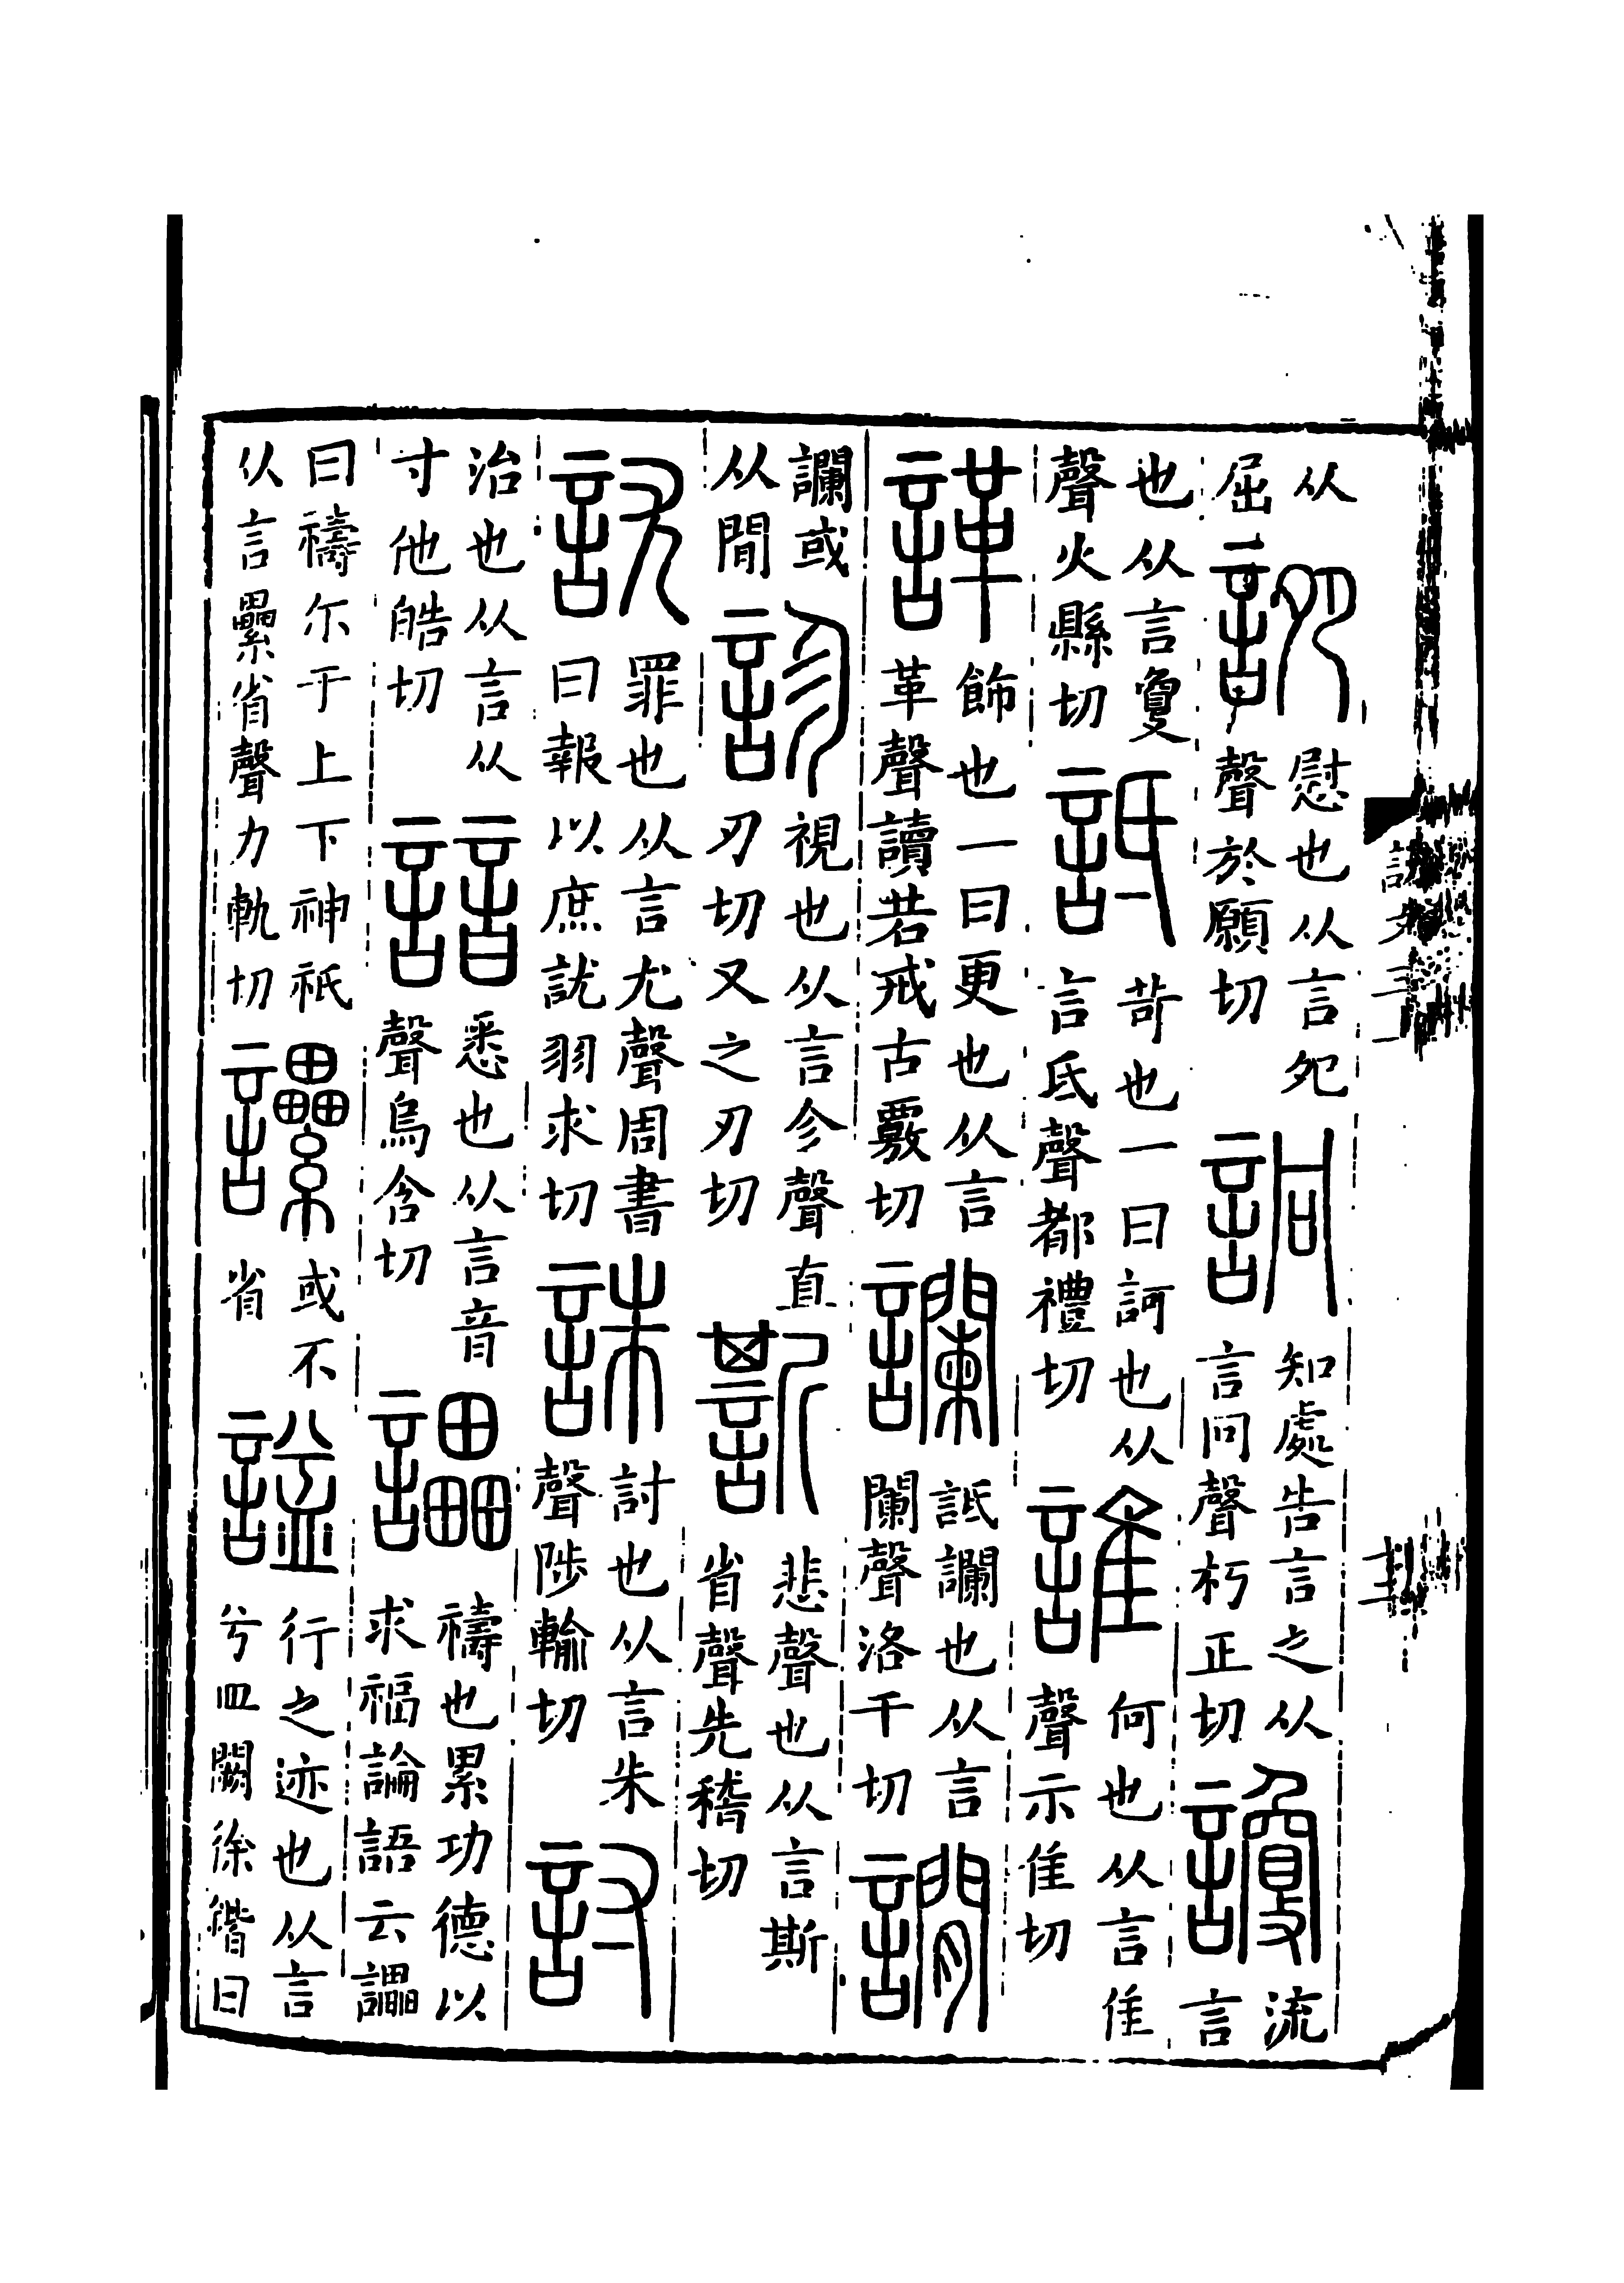 从屈𧦝慰也从言夗聲於願切詗知處告言之从言冋聲朽正切讂流言
也从言敻聲火縣切詆苛也一曰訶也从言氐聲都禮切誰何也从言隹聲示隹切
諽飾也一曰更也从言革聲讀若戒古覈切讕詆讕也从言闌聲洛干切譋
讕或从閒診視也从言㐱聲直刃切又之刃切悲聲也从言斯省聲先稽切
訧罪也从言尤聲周書曰報以庶訧羽求切誅討也从言朱聲陟輸切討
治也从言从寸他皓切諳悉也从言音聲烏含切讄禱也累功德以求福論語云讄
曰禱尒于上下神祇从言纍省聲力軌切𧮢或不省謚行之迹也从言兮皿闕徐鍇曰